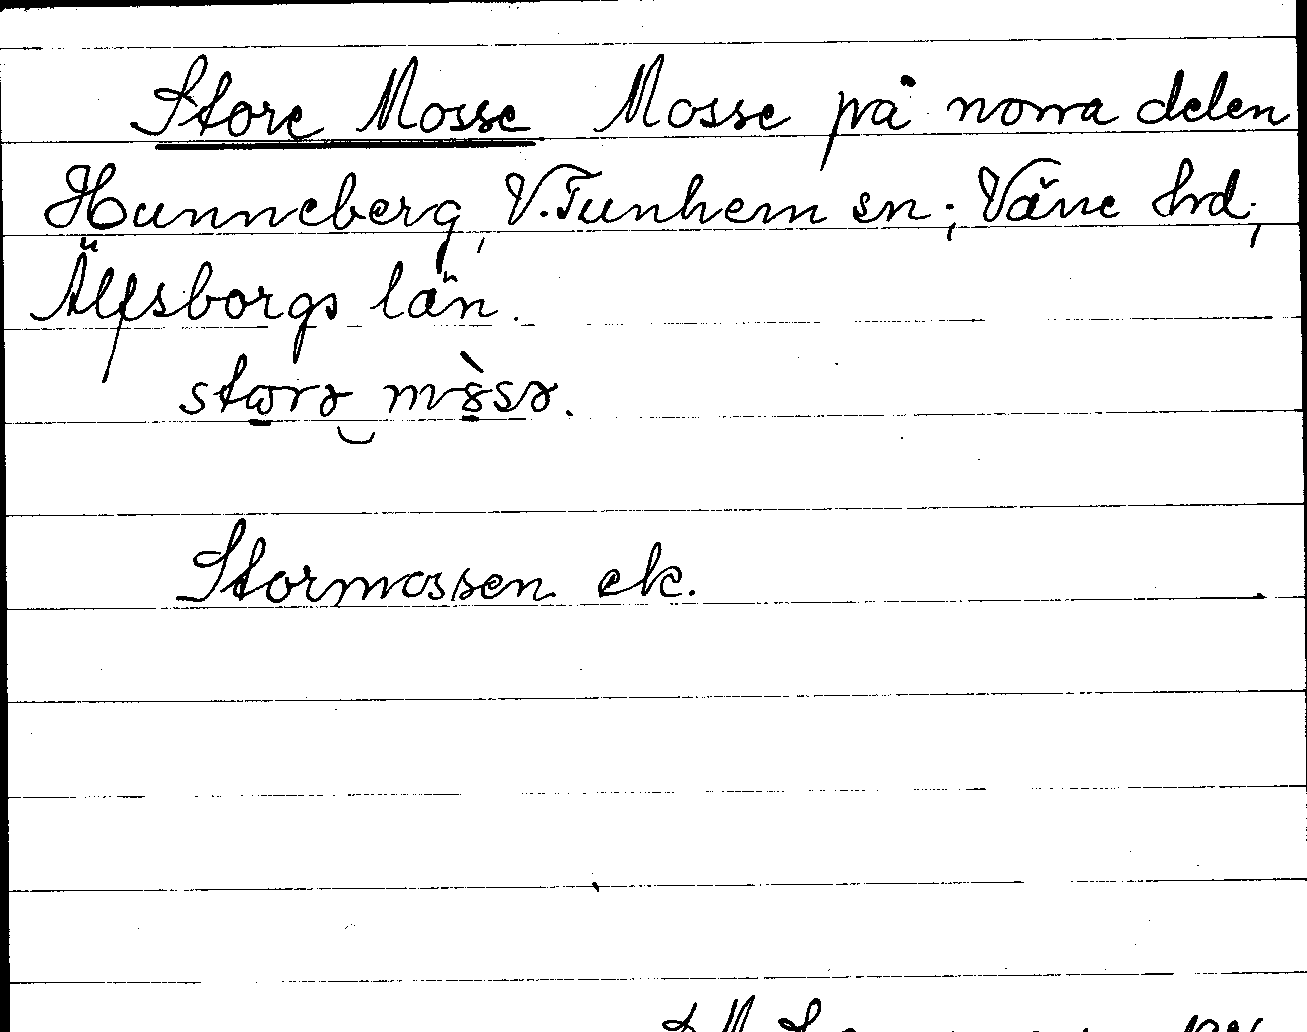 Store Mosse Mosse på norra delen
Hunneberg, V. Tunhem sn; Väne hrd;
Älfsborgs län.
storə mòsə.
Stormossen ek.